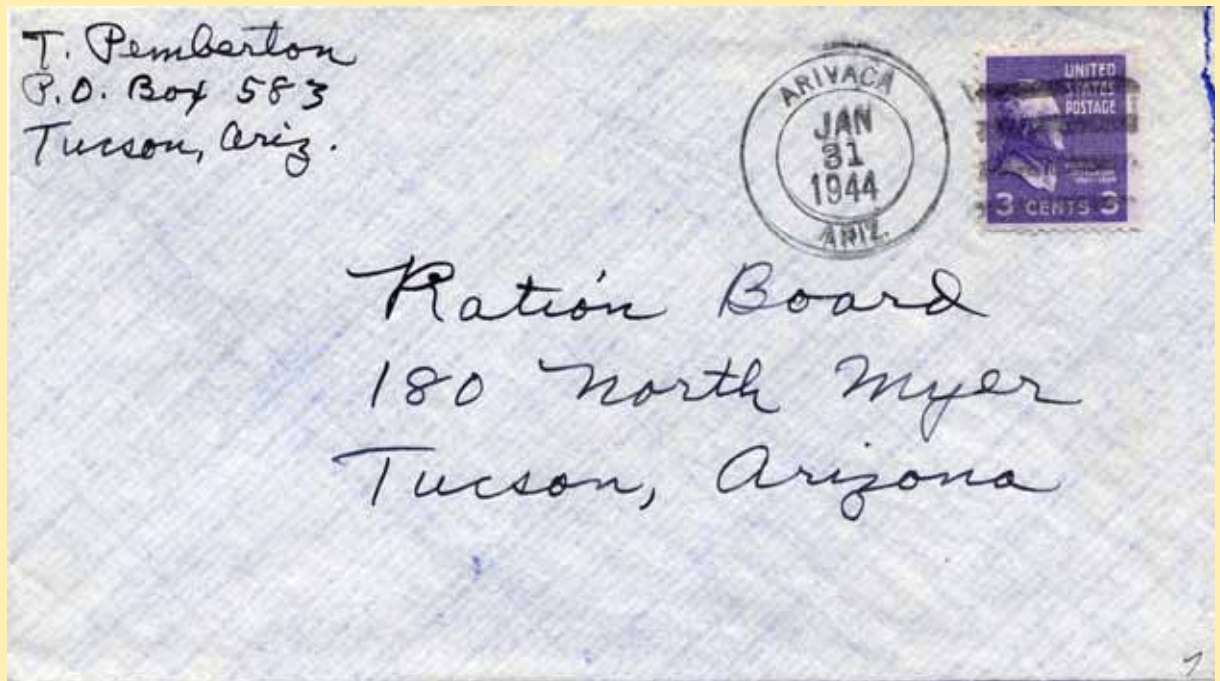 T. Pemberton
P.O. Box 583
Tucson, Ariz.
ARIVACA
JAN
31
1944
ARIZ.
UNITED
STATES
POSTAGE
3 CENTS 3
Ration Board
180 North Myer
Tucson, Arizona
7